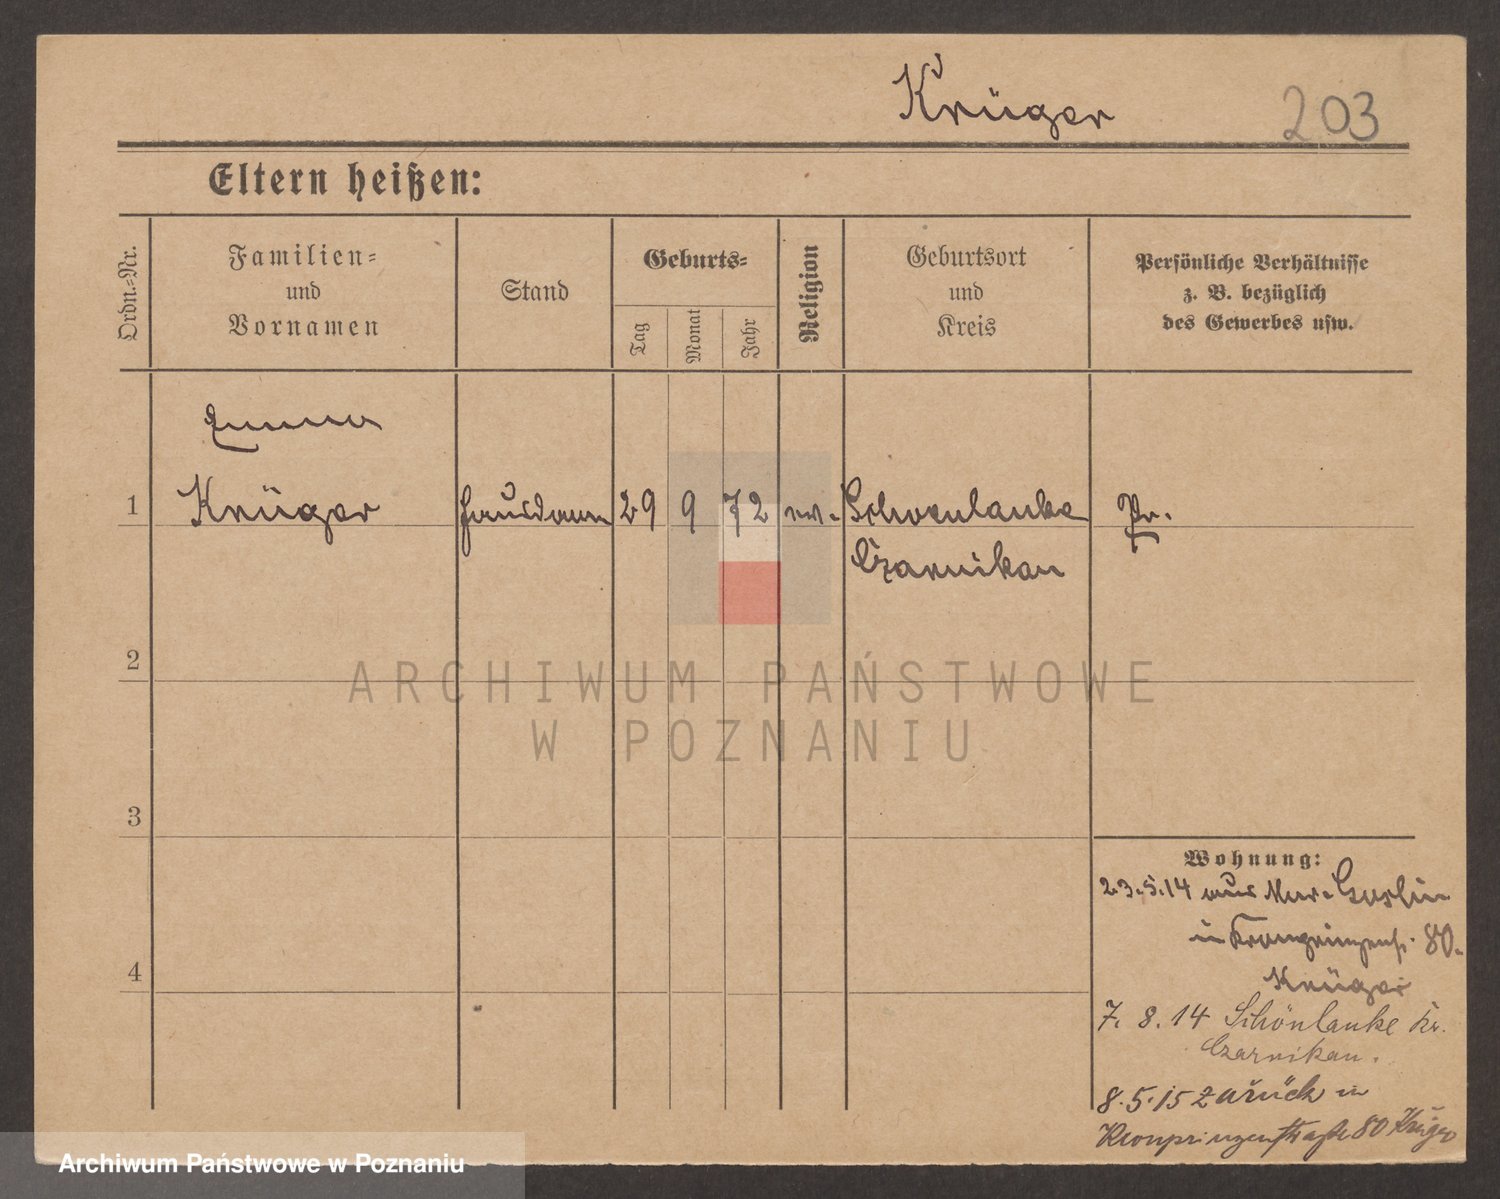 Krüger
203
Eltern heißen:
Ordn.-Nr.
Familien-
und
Vornamen
Stand
Geburts-
Tag
Monat
Jahr
Religion
Geburtsort
und
Kreis
Persönliche Verhältnisse
z. B. bezüglich
des Gewerbes usw.
Emma
1 Krüger 29 9 72 ev. Schoenlanke Pr.
Czarnikau
2
3
4
ARCHIWUM PAŃSTWOWE
W POZNANIU
Wohnung:
23.5.14 aus Mur. Goslin
in Kronprinzenstr. 80.
Krüger
7. 8. 14 Schönlanke Kr.
Czarnikau.
8.5.15 zurück in
Kronprinzenstraße 80 Krüger
Archiwum Państwowe w Poznaniu